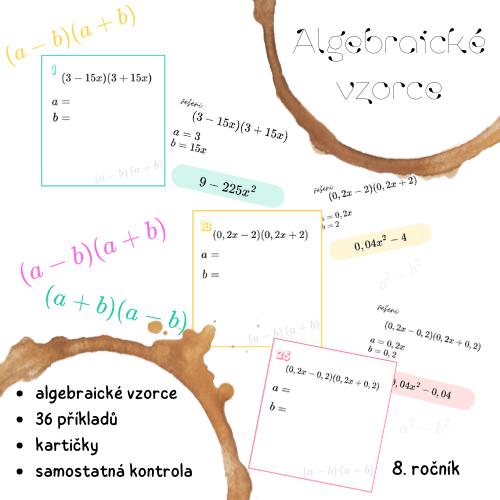 (a − b)(a + b)
Algebraické
vzorce
1
(3 − 15x)(3 + 15x)
a =
b =
(a − b)(a + b)
řešení
(3 − 15x)(3 + 15x)
a = 3
b = 15x
9 − 225x²
13
(0,2x − 2)(0,2x + 2)
a =
b =
(a − b)(a + b)
řešení
(0,2x − 2)(0,2x + 2)
a = 0,2x
b = 2
0,04x² − 4
a² − b²
(a − b)(a + b)
(a + b)(a − b)
25
(0,2x − 0,2)(0,2x + 0,2)
a =
b =
(a − b)(a + b)
řešení
(0,2x − 0,2)(0,2x + 0,2)
a = 0,2x
b = 0,2
0,04x² − 0,04
a² − b²
• algebraické vzorce
• 36 příkladů
• kartičky
• samostatná kontrola
8. ročník